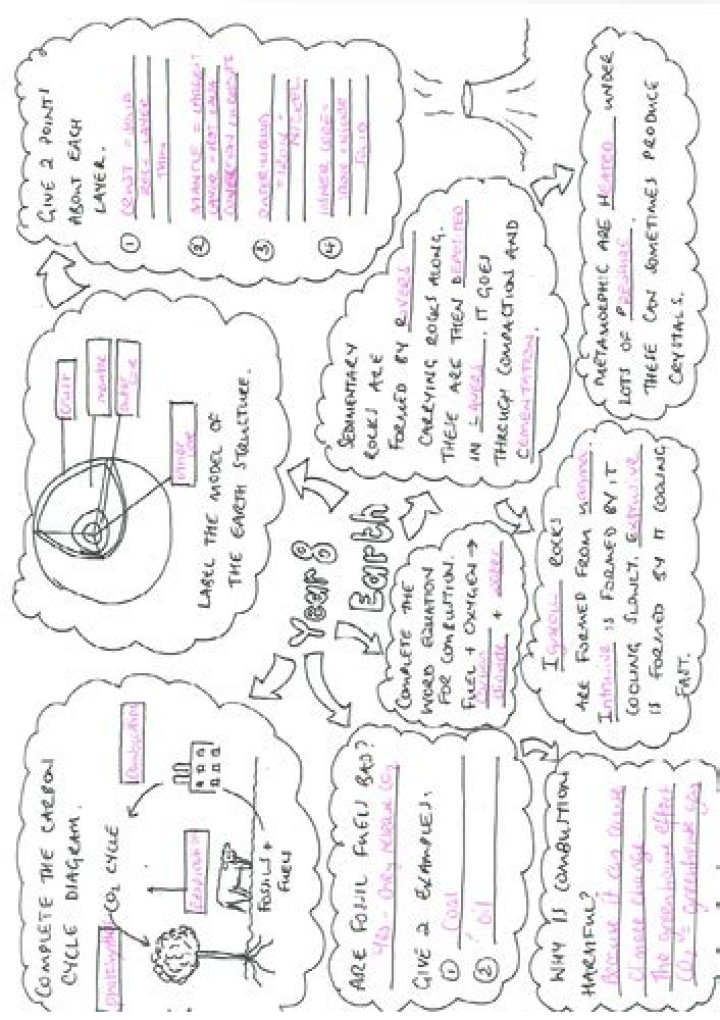 COMPLETE THE CARBON
CYCLE DIAGRAM.
CO2 CYCLE
Combustion
FOSSILS +
FUELS
LABEL THE MODEL OF
THE EARTH STRUCTURE.
crust
mantle
outer
core
inner
core
GIVE 2 POINTS
ABOUT EACH
LAYER.
①
CRUST = SOLID
ROCK LAYER
THIN
②
MANTLE = LARGEST
③
= IRON +
NICKEL
④
INNER CORE =
SOLID
Year 8
Earth
ARE FOSSIL FUELS BAD?
Yes - they release CO2
GIVE 2 EXAMPLES.
① Coal
② oil
COMPLETE THE
WORD EQUATION
FOR COMBUSTION.
FUEL + OXYGEN →
Carbon
dioxide + water
SEDIMENTARY
ROCKS ARE
FORMED BY RIVERS
CARRYING ROCKS ALONG.
THESE ARE THEN DEPOSITED
IN LAYERS. IT GOES
THROUGH COMPACTION AND
CEMENTATION.
WHY IS COMBUSTION
HARMFUL?
Because it can cause
climate change
The greenhouse effect
CO2 = greenhouse gas
IGNEOUS ROCKS
ARE FORMED FROM MAGMA.
INTRUSIVE IS FORMED BY IT
COOLING SLOWLY. EXTRUSIVE
IS FORMED BY IT COOLING
FAST.
METAMORPHIC ARE HEATED UNDER
LOTS OF PRESSURE.
THESE CAN SOMETIMES PRODUCE
CRYSTALS.